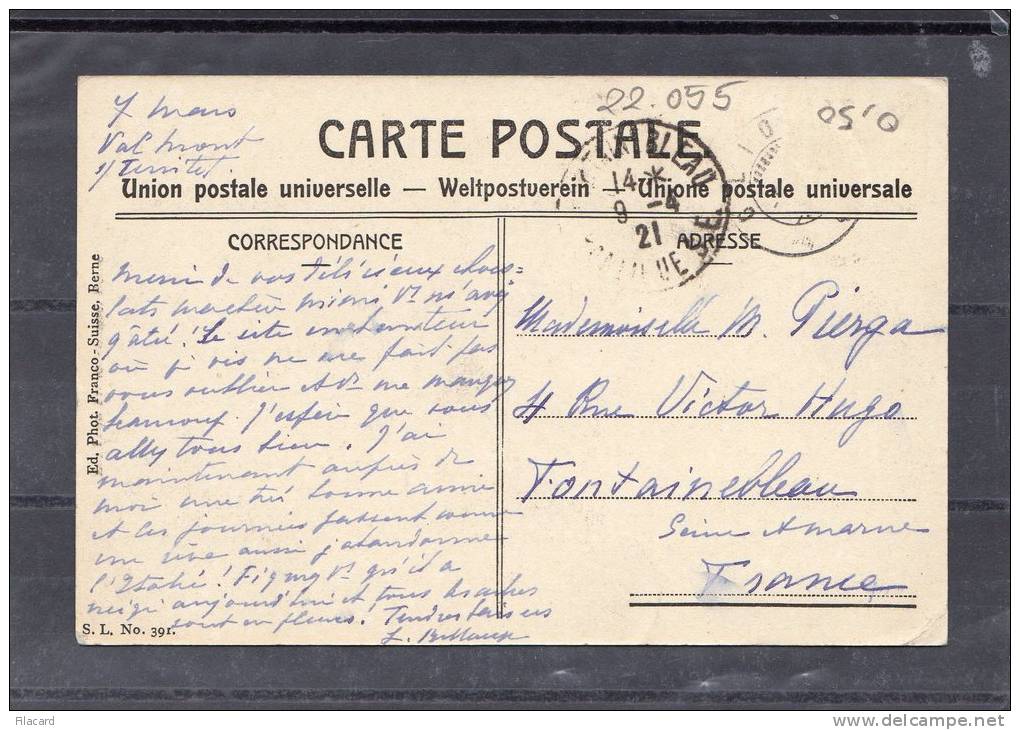 7 mars
Val Mont
s/ Territet
22.055
0,50
CARTE POSTALE
Union postale universelle — Weltpostverein — Unione postale universale
14-*
9 -4
21
CORRESPONDANCE
ADRESSE
Merci de vos délicieux choco=
lats ma chère Mimi Vs m'avez
gâté! Le site enchanteur
où je vis ne me fait pas
vous oublier et vs me manquez
beaucoup. J'espère que vous
allez tous bien. J'ai
maintenant auprès de
moi une très bonne amie
et les journées passent comme
un rêve aussi j'abandonne
l'Italie! Figurez vs qu'il a
neigé aujourd'hui et tous les arbres
sont en fleurs! Tendres baisers
L.
Mademoiselle M. Pierga
4 Rue Victor Hugo
Fontainebleau
Seine et marne
France
Ed. Phot. Franco-Suisse, Berne
S. L. No. 391.
Filacard
www.delcampe.net